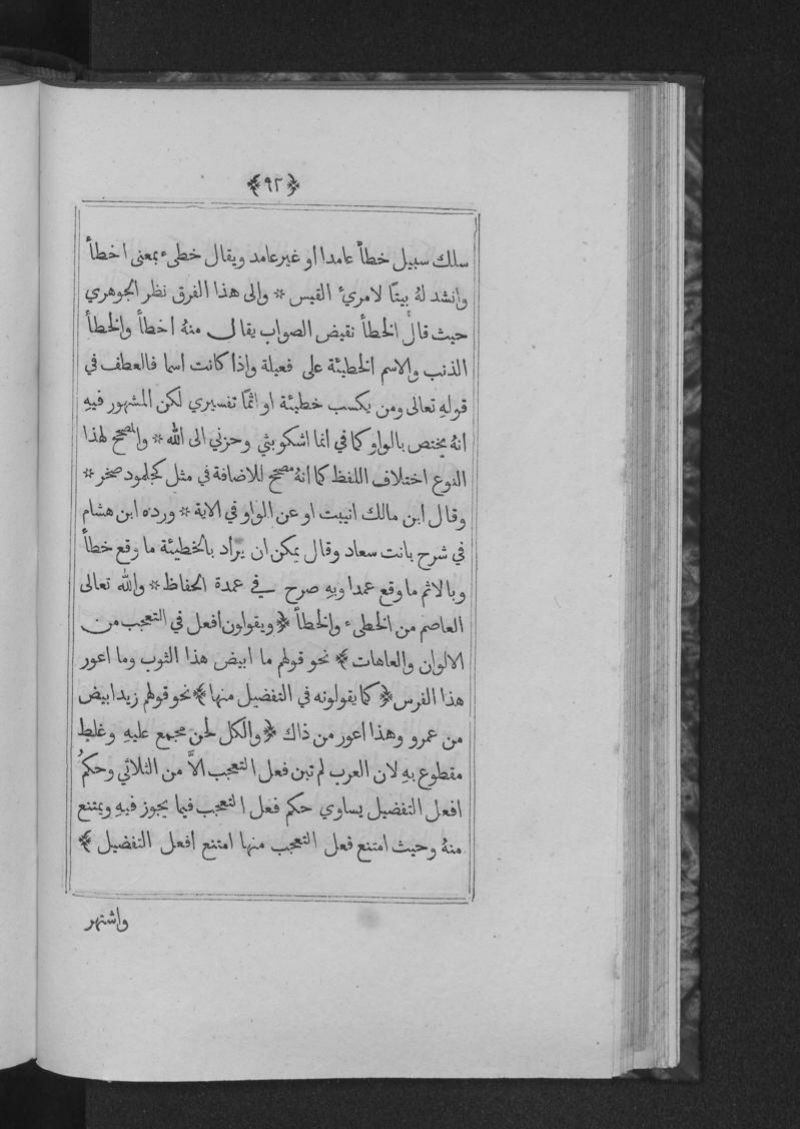 ﴿٩٢﴾
سلك سبيل خطأ عامدا او غير عامد ويقال خطىء بمعنى اخطأ
وانشد لهُ بيتًا لامرئ القيس * والى هذا الفرق نظر الجوهري
حيث قال الخطأ نقيض الصواب يقال منهُ اخطأ والخطأ
الذنب والاسم الخطيئة على فعيلة واذا كانت اسما فالعطف في
قولهِ تعالى ومن يكسب خطيئة او اثمًا تفسيري لكن المشهور فيهِ
انهُ يختص بالواو كما في انما اشكو بثي وحزني الى الله * والمصحح لهذا
النوع اختلاف اللفظ كما انهُ مصحح للاضافة في مثل كجلمود صخر *
وقال ابن مالك انيبت او عن الواو في الاية * ورده ابن هشام
في شرح بانت سعاد وقال يمكن ان يراد بالخطيئة ما وقع خطأ
وبالاثم ما وقع عمدا وبهِ صرح في عمدة الحفاظ * والله تعالى
العاصم من الخطىء والخطأ ﴿ويقولون افعل في التعجب من
الالوان والعاهات﴾ نحو قولهم ما ابيض هذا الثوب وما اعور
هذا الفرس ﴿كما يقولونه في التفضيل منها﴾ نحو قولهم زيد ابيض
من عمرو وهذا اعور من ذاك ﴿والكل لحن مجمع عليهِ وغلط
مقطوع بهِ لان العرب لم تبن فعل التعجب الاَّ من الثلاثي وحكمُ
افعل التفضيل يساوي حكم فعل التعجب فيما يجوز فيهِ ويمتنع
منهُ وحيث امتنع فعل التعجب منها امتنع افعل التفضيل﴾
واشتهر